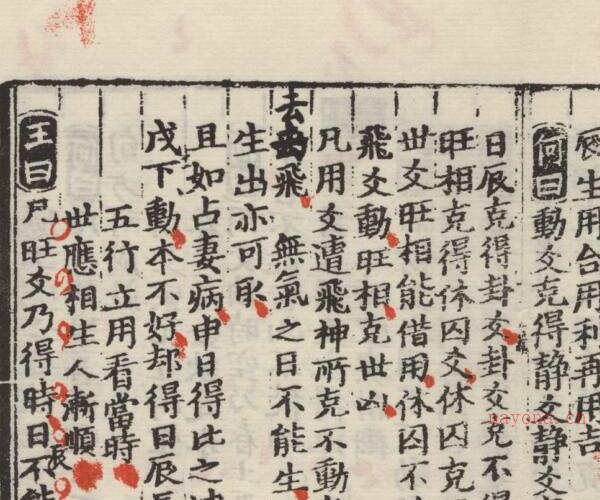 生用合用利再用吉
何曰動爻克得静爻静爻
日辰克得卦爻卦爻克不得
旺相克得休囚爻休囚克
世爻旺相能借用休囚不
飛爻動旺相克世凶
凡用爻遭飛神所克不動
去飛無氣之日不能生
生出亦可取
且如占妻病申日得比之
戌下動本不好却得日辰
五行立用看當時
世應相生人漸順
王曰凡旺爻乃得時日辰不能
nayona.cn